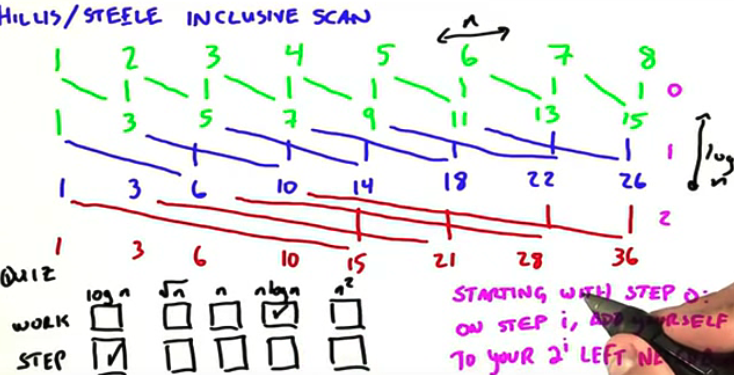 HILLIS/STEELE INCLUSIVE SCAN
n
1 2 3 4 5 6 7 8
0
1 3 5 7 9 11 13 15
1
log n
1 3 6 10 14 18 22 26
2
1 3 6 10 15 21 28 36
QUIZ
log n √n n n log n n²
WORK
STEP
STARTING WITH STEP 0:
ON STEP i, ADD YOURSELF
TO YOUR 2^i LEFT